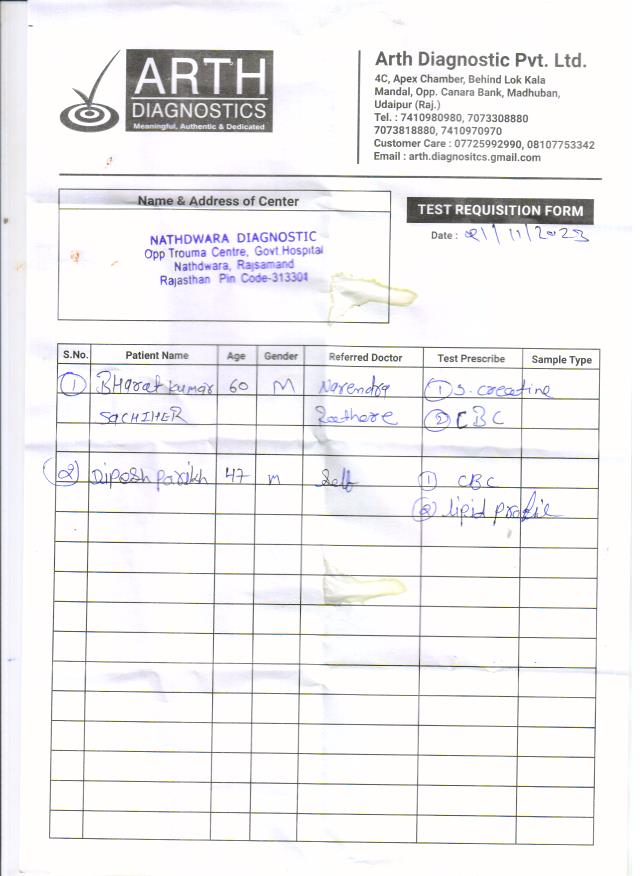 ARTH
DIAGNOSTICS
Meaningful, Authentic & Dedicated
Arth Diagnostic Pvt. Ltd.
4C, Apex Chamber, Behind Lok Kala
Mandal, Opp. Canara Bank, Madhuban,
Udaipur (Raj.)
Tel. : 7410980980, 7073308880
7073818880, 7410970970
Customer Care : 07725992990, 08107753342
Email : arth.diagnositcs.gmail.com
Name & Address of Center
NATHDWARA DIAGNOSTIC
Opp Trouma Centre, Govt Hospital
Nathdwara, Rajsamand
Rajasthan Pin Code-313301
TEST REQUISITION FORM
Date : 21/11/2023
S.No. Patient Name Age Gender Referred Doctor Test Prescribe Sample Type
1 BHarat kumar 60 M Narendra 1 S. creatine
SACHIHER Rathore 2 CBC
2 Dipesh parikh 47 m Self 1 CBC
2 lipid profile